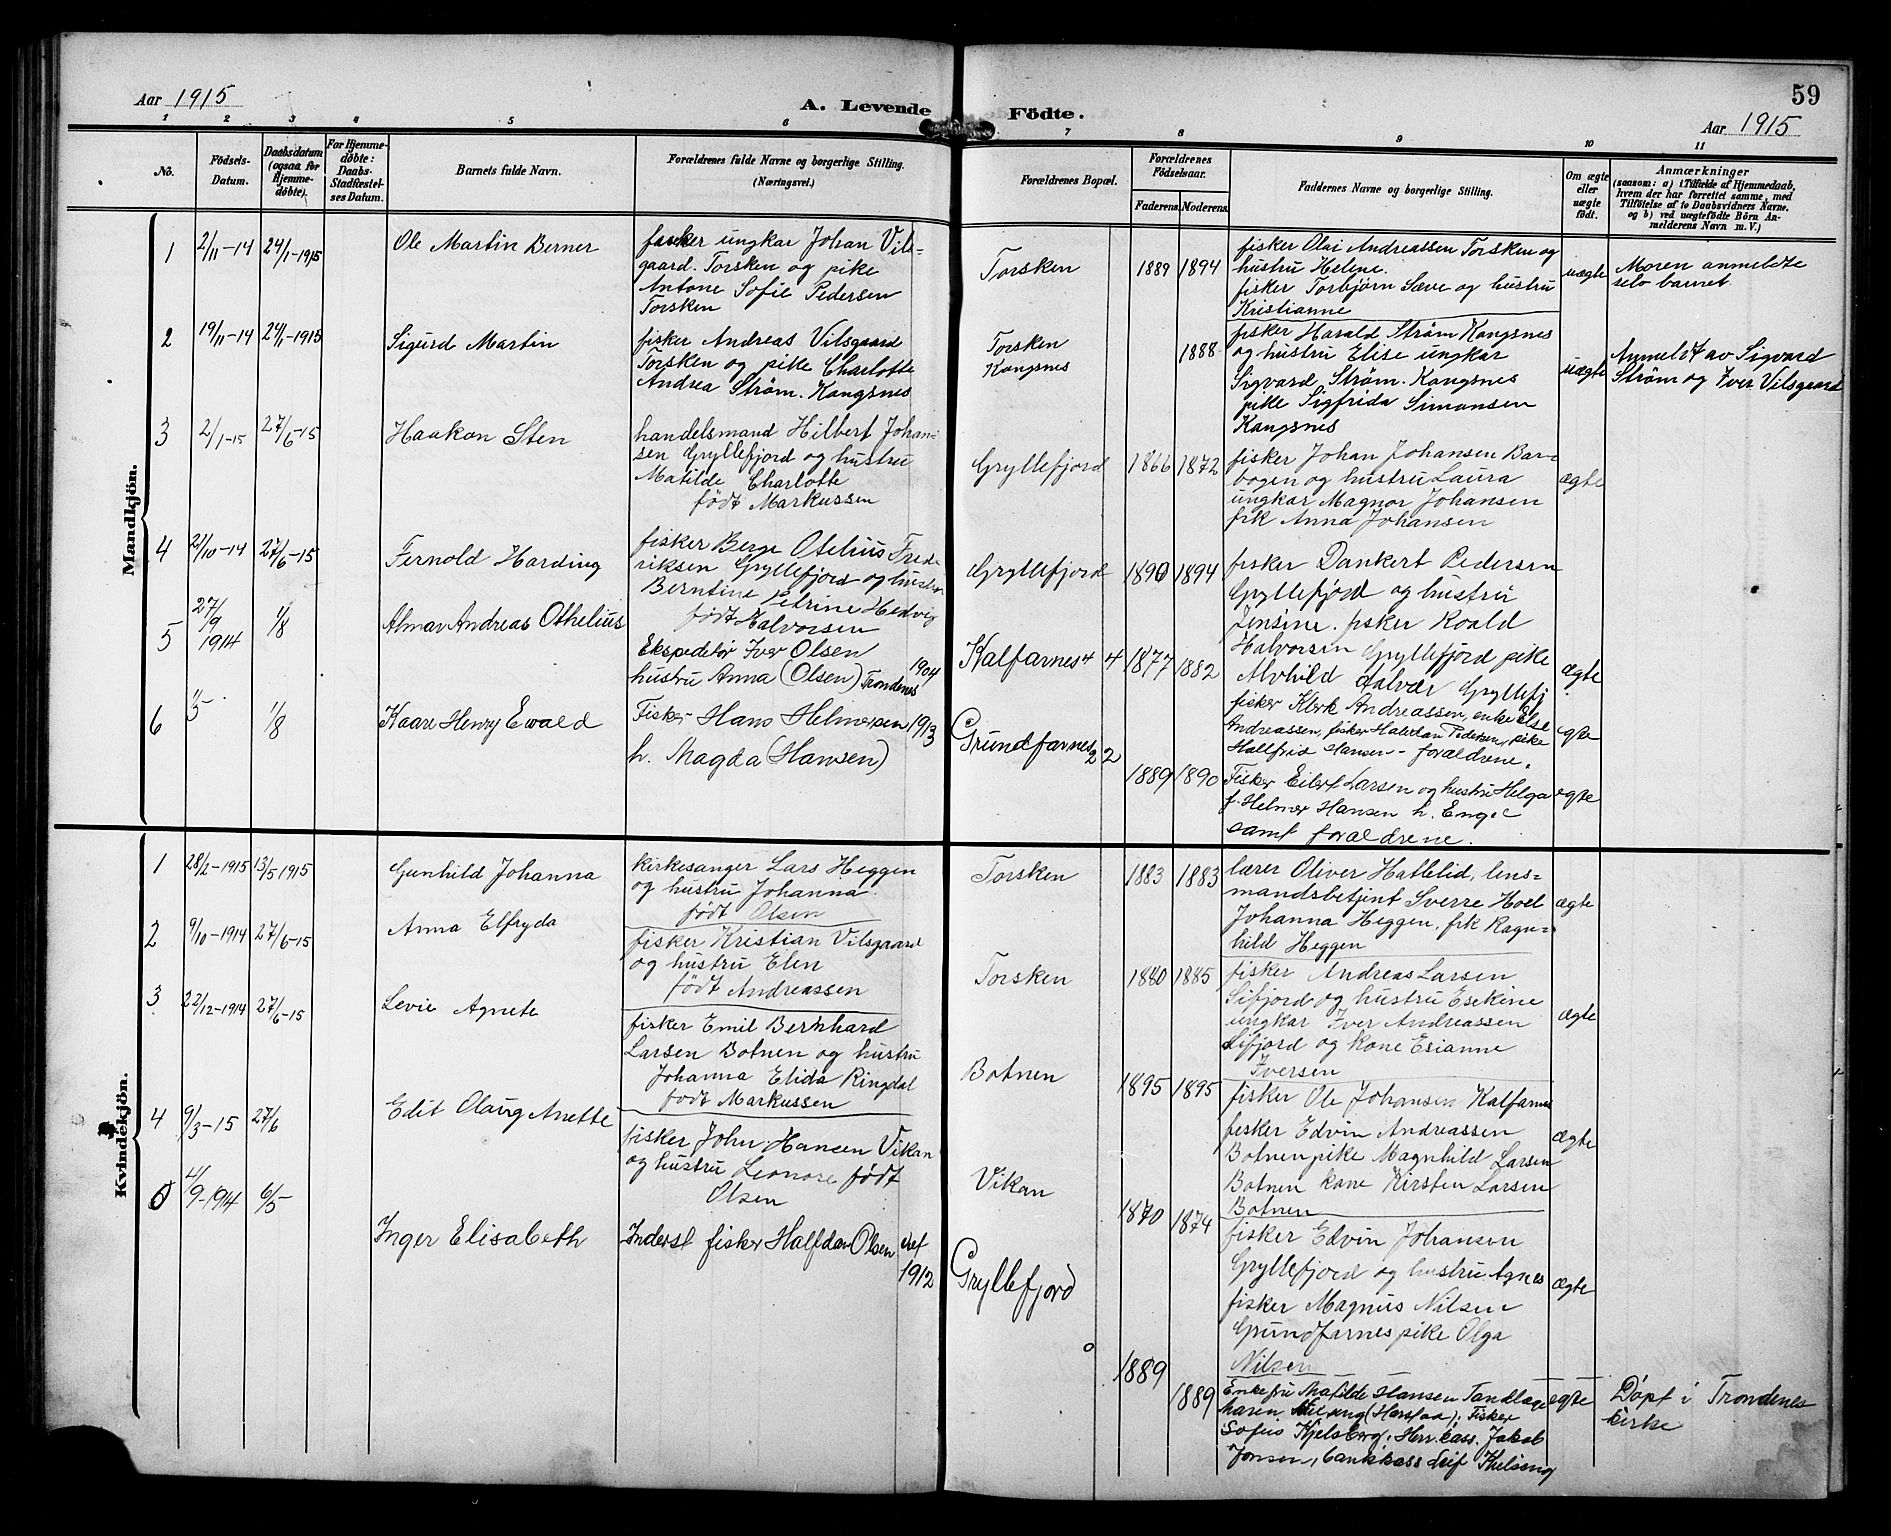 59
Aar 1915
A. Levende Födte.
Aar 1915
1 2 3 4 5 6 7 8 9 10 11
No.
Födsels-
Datum.
Daabsdatum
(ogsaa for
Hjemme-
döbte).
For Hjemme-
döbte:
Daabs-
Stadfæstel-
ses Datum.
Barnets fulde Navn.
Forældrenes fulde Navne og borgerlige Stilling.
(Næringsvei.)
Forældrenes Bopæl.
Forældrenes
Födselsaar.
Faderens Moderens.
Faddernes Navne og borgerlige Stilling.
Om ægte
eller
uægte
födt.
Anmærkninger
(saasom: a) i Tilfælde af Hjemmedaab,
hvem der har forrettet samme, med
Tilföielse af to Daabsvidners Navne.
og b) ved uægtefödte Börn An-
melderens Navn m. V.)
Mandkjön.
1
2/11-14
24/1-1915
Ole Martin Berner
fisker ungkar Johan Vils-
gaard. Torsken og pike
Antone Sofie Pedersen
Torsken
Torsken
1889 1894
fisker Olai Andreassen Torsken og
hustru Helene.
fisker Torbjørn Sæve og hustru
Kristianne
uægte
Moren anmeldte
selv barnet.
2
19/11-14
24/1-1915
Sigurd Martin
fisker Andreas Vilsgaard
Torsken og pike Charlotte
Andrea Strøm. Kangsnes
Torsken
Kangsnes
1888
fisker Harald Strøm Kangsnes
og hustru Elise ungkar
Sigvard Strøm. Kangsnes
pike Sigfrida Simonsen
Kangsnes
uægte
Anmeldt av Sigvard
Strøm og Iver Vilsgaard
3
2/1-15
27/6-15
Haakon Sten
handelsmand Hilbert Johan-
sen Gryllefjord og hustru
Matilde Charlotte
født Markussen
Gryllefjord
1866 1872
fisker Johan Johansen Bar-
bogen og hustru Laura
ungkar Magnor Johansen
frk Anna Johansen
ægte
4
21/10-14
27/6-15
Fernold Harding
fisker Berge Otelius Fred-
riksen Gryllefjord og hustru
Berntine Petrine Hedvig
født Halvorsen
Gryllefjord
1890 1894
fisker Dankert Pedersen
Gryllefjord og hustru
Jensine. fisker Roald
Halvorsen Gryllefjord pike
Alvhild Aalvær Gryllefj
ægte
5
27/9
1914
1/8
Almar Andreas Othelius
Ekspeditør Iver Olsen
hustru Anna (Olsen) Trondenes
1904
Kalfarnes 4 4
1877 1882
fisker Klerk Andreassen, enke Else
Andreassen, fisker Halvdan Pedersen, pike
Hallfrid Hansen - forældrene.
ægte
6
1/5
1/8
Kaare Henry Ewald
Fisker Hans Helmersen
h. Magda (Hansen)
1913
Grundfarnes 2 2
1889 1890
Fisker Eilert Larsen og hustru Helga
f. Helmer Hansen h. Engel
samt forældrene.
ægte
Kvindekjön.
1
28/2-1915
13/5 1915
Gunhild Johanna
kirkesanger Lars Heggen
og hustru Johanna
født Olsen
Torsken
1883 1883
lærer Oliver Hallelid, lens-
mandsbetjent Sverre Hoel
Johanna Heggen, frk Ragn-
hild Heggen
ægte
2
9/10-1914
27/6-15
Anna Elfryda
fisker Kristian Vilsgaard
og hustru Elen
født Andreassen
Torsken
1880 1885
fisker Andreas Larsen
Sifjord og hustru Esekine
ungkar Iver Andreassen
Sifjord og kone Esianne
Iversen
ægte
3
22/12-1914
27/6-15
Levie Agnete
fisker Emil Bernhard
Larsen Botnen og hustru
Johanna Elida Ringdal
født Markussen
Botnen
1895 1895
fisker Ole Johansen Kalfarnes
fisker Edvin Andreassen
Botnen pike Magnhild Larsen
Botnen kone Kirsten Larsen
Botnen
ægte
4
9/3-15
27/6
Edit Olaug Anette
fisker John Hansen Vikan
og hustru Leonore født
Olsen
Vikan
1870 1874
fisker Edvin Johansen
Gryllefjord og hustru Agnes
fisker Magnus Nilsen
Grundfarnes pike Olga
Nilsen
ægte
5
4/9-1914
6/5
Inger Elisabeth
Inderst fisker Halfdan Olsen
1912
Gryllefjord
1889
1889
Enkefru Matilde Hansen Tandlæge
Maren (Harstad), Fisker
Sofus Kjelsberg, Herr. kass. Jakob
Jensen, bankkass Leif
ægte
Døpt i Trondenes
kirke